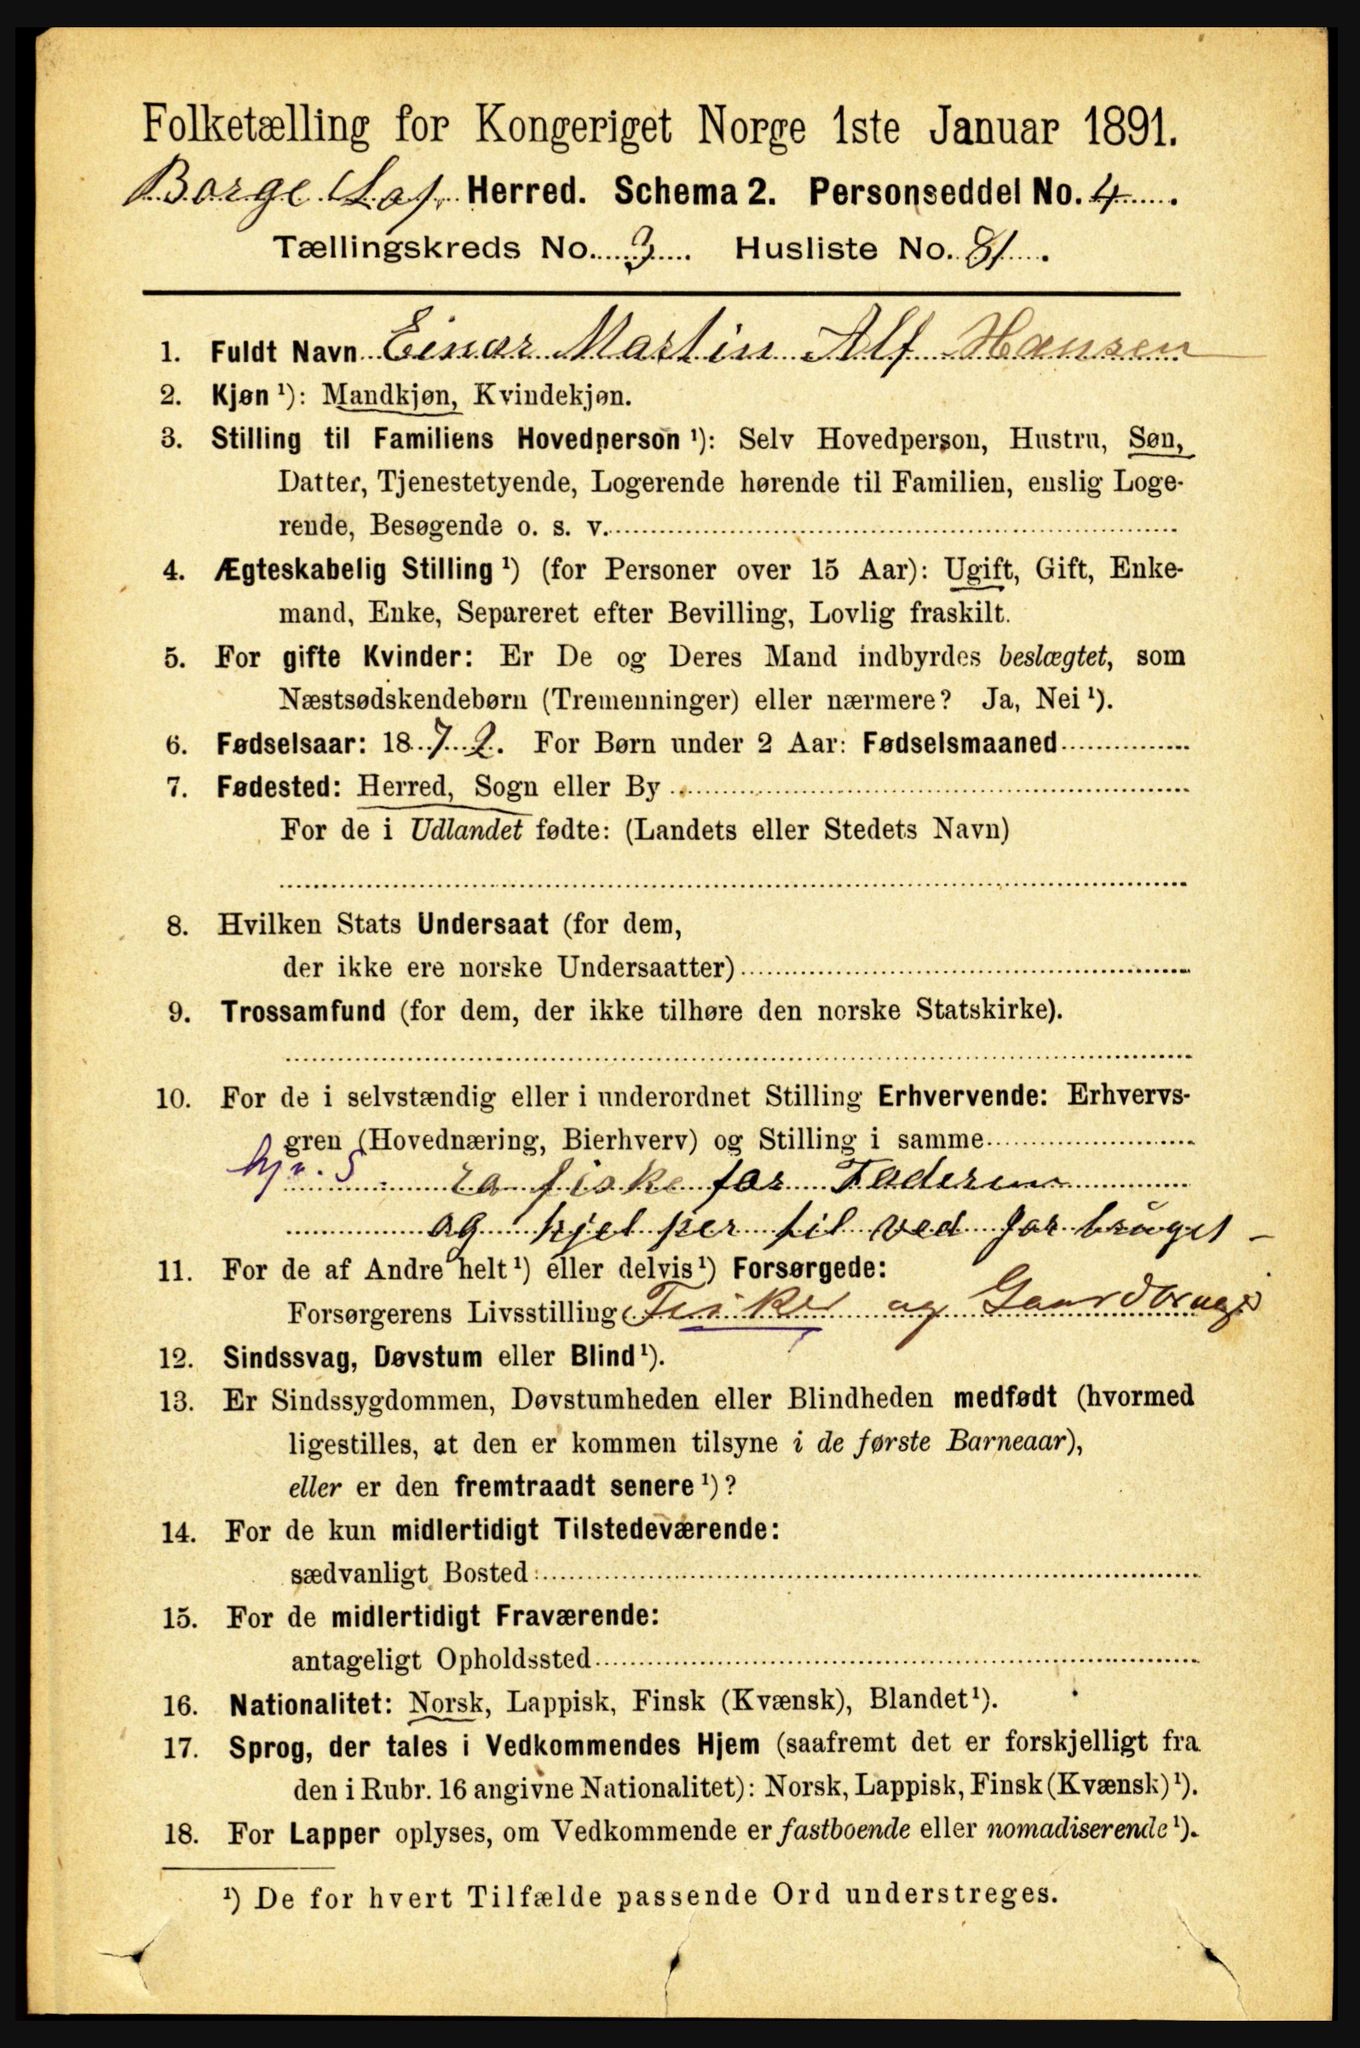 Folketælling for Kongeriget Norge 1ste Januar 1891.
Borge Lof. Herred. Schema 2. Personseddel No. 4.
Tællingskreds No. 3. Husliste No. 81.
1. Fuldt Navn Einar Martin Alf Hansen
2. Kjøn ¹): Mandkjøn, Kvindekjøn.
3. Stilling til Familiens Hovedperson ¹): Selv Hovedperson, Hustru, Søn,
Datter, Tjenestetyende, Logerende hørende til Familien, enslig Loge-
rende, Besøgende o. s. v.
4. Ægteskabelig Stilling ¹) (for Personer over 15 Aar): Ugift, Gift, Enke-
mand, Enke, Separeret efter Bevilling, Lovlig fraskilt.
5. For gifte Kvinder: Er De og Deres Mand indbyrdes beslægtet, som
Næstsødskendebørn (Tremenninger) eller nærmere? Ja, Nei ¹).
6. Fødselsaar: 1872. For Børn under 2 Aar: Fødselsmaaned
7. Fødested: Herred, Sogn eller By
For de i Udlandet fødte: (Landets eller Stedets Navn)
8. Hvilken Stats Undersaat (for dem,
der ikke ere norske Undersaatter)
9. Trossamfund (for dem, der ikke tilhøre den norske Statskirke).
10. For de i selvstændig eller i underordnet Stilling Erhvervende: Erhvervs-
gren (Hovednæring, Bierhverv) og Stilling i samme
fiske for Faderen
og hjelper til ved jorbruget
11. For de af Andre helt ¹) eller delvis ¹) Forsørgede:
Forsørgerens Livsstilling Fisker og Gaardbruger
12. Sindssvag, Døvstum eller Blind ¹).
13. Er Sindssygdommen, Døvstumheden eller Blindheden medfødt (hvormed
ligestilles, at den er kommen tilsyne i de første Barneaar),
eller er den fremtraadt senere ¹)?
14. For de kun midlertidigt Tilstedeværende:
sædvanligt Bosted
15. For de midlertidigt Fraværende:
antageligt Opholdssted
16. Nationalitet: Norsk, Lappisk, Finsk (Kvænsk), Blandet ¹).
17. Sprog, der tales i Vedkommendes Hjem (saafremt det er forskjelligt fra
den i Rubr. 16 angivne Nationalitet): Norsk, Lappisk, Finsk (Kvænsk) ¹).
18. For Lapper oplyses, om Vedkommende er fastboende eller nomadiserende ¹).
¹) De for hvert Tilfælde passende Ord understreges.